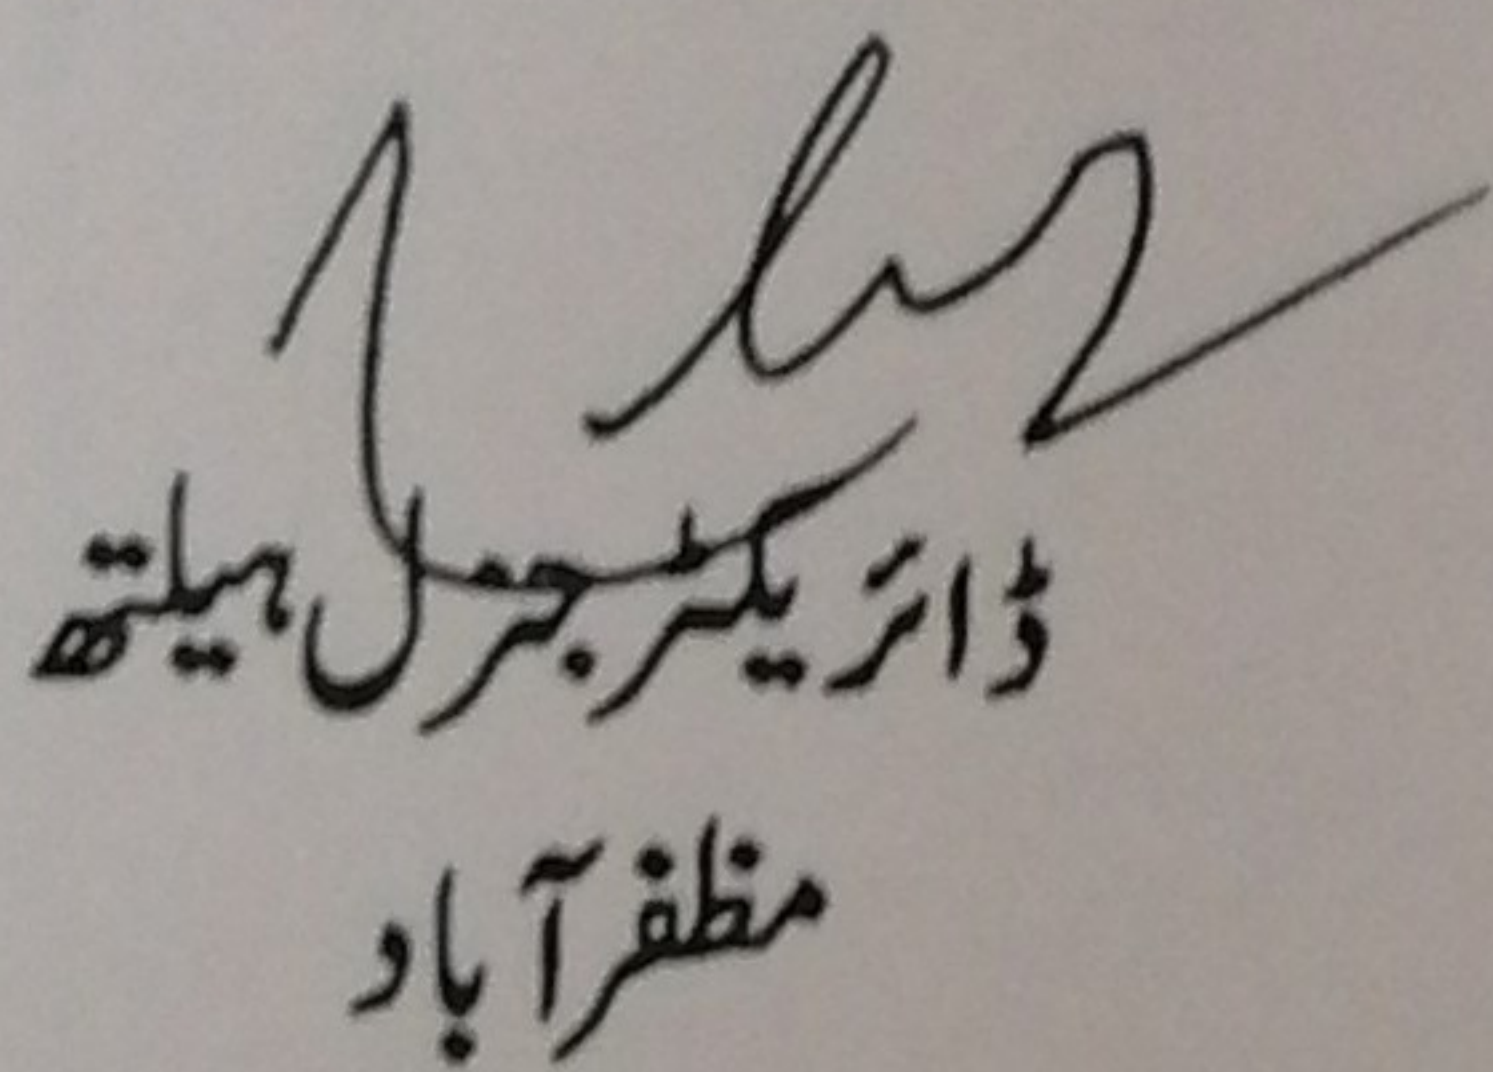 ڈائریکٹر جنرل ہیلتھ
مظفر آباد